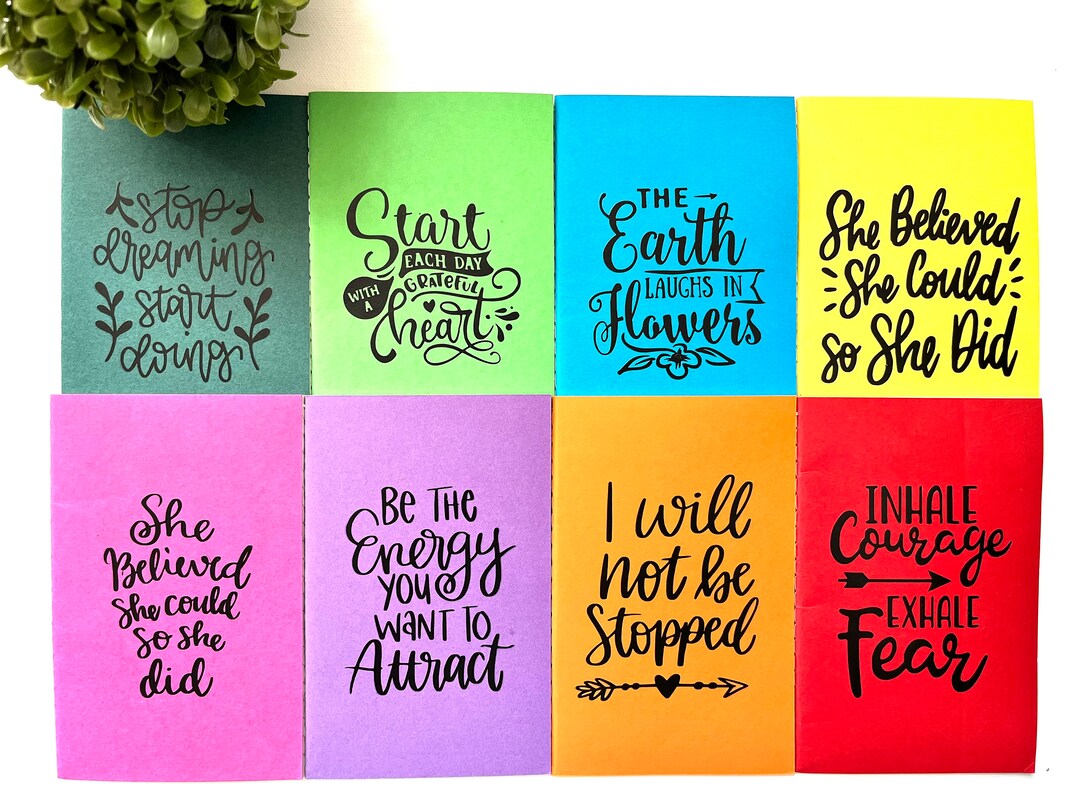 stop
dreaming
start
doing
Start
EACH DAY
WITH A GRATEFUL
heart
THE
Earth
LAUGHS IN
Flowers
She Believed
She Could
so She Did
She
Believed
she could
so she
did
BE THE
Energy
YOU
WANT TO
Attract
I will
not be
Stopped
INHALE
Courage
EXHALE
Fear